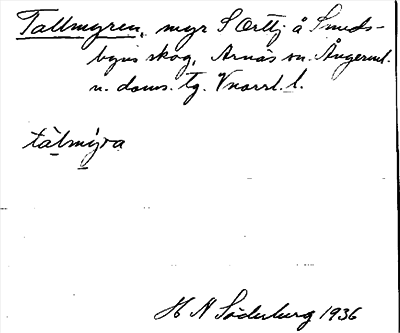 Tallmyren, myr S Orttj å Smeds-
byns skog, Arnäs sn. Ångerml.
n. doms. tg. Vnorrl. l.
tàlmýra
H N Söderberg 1936